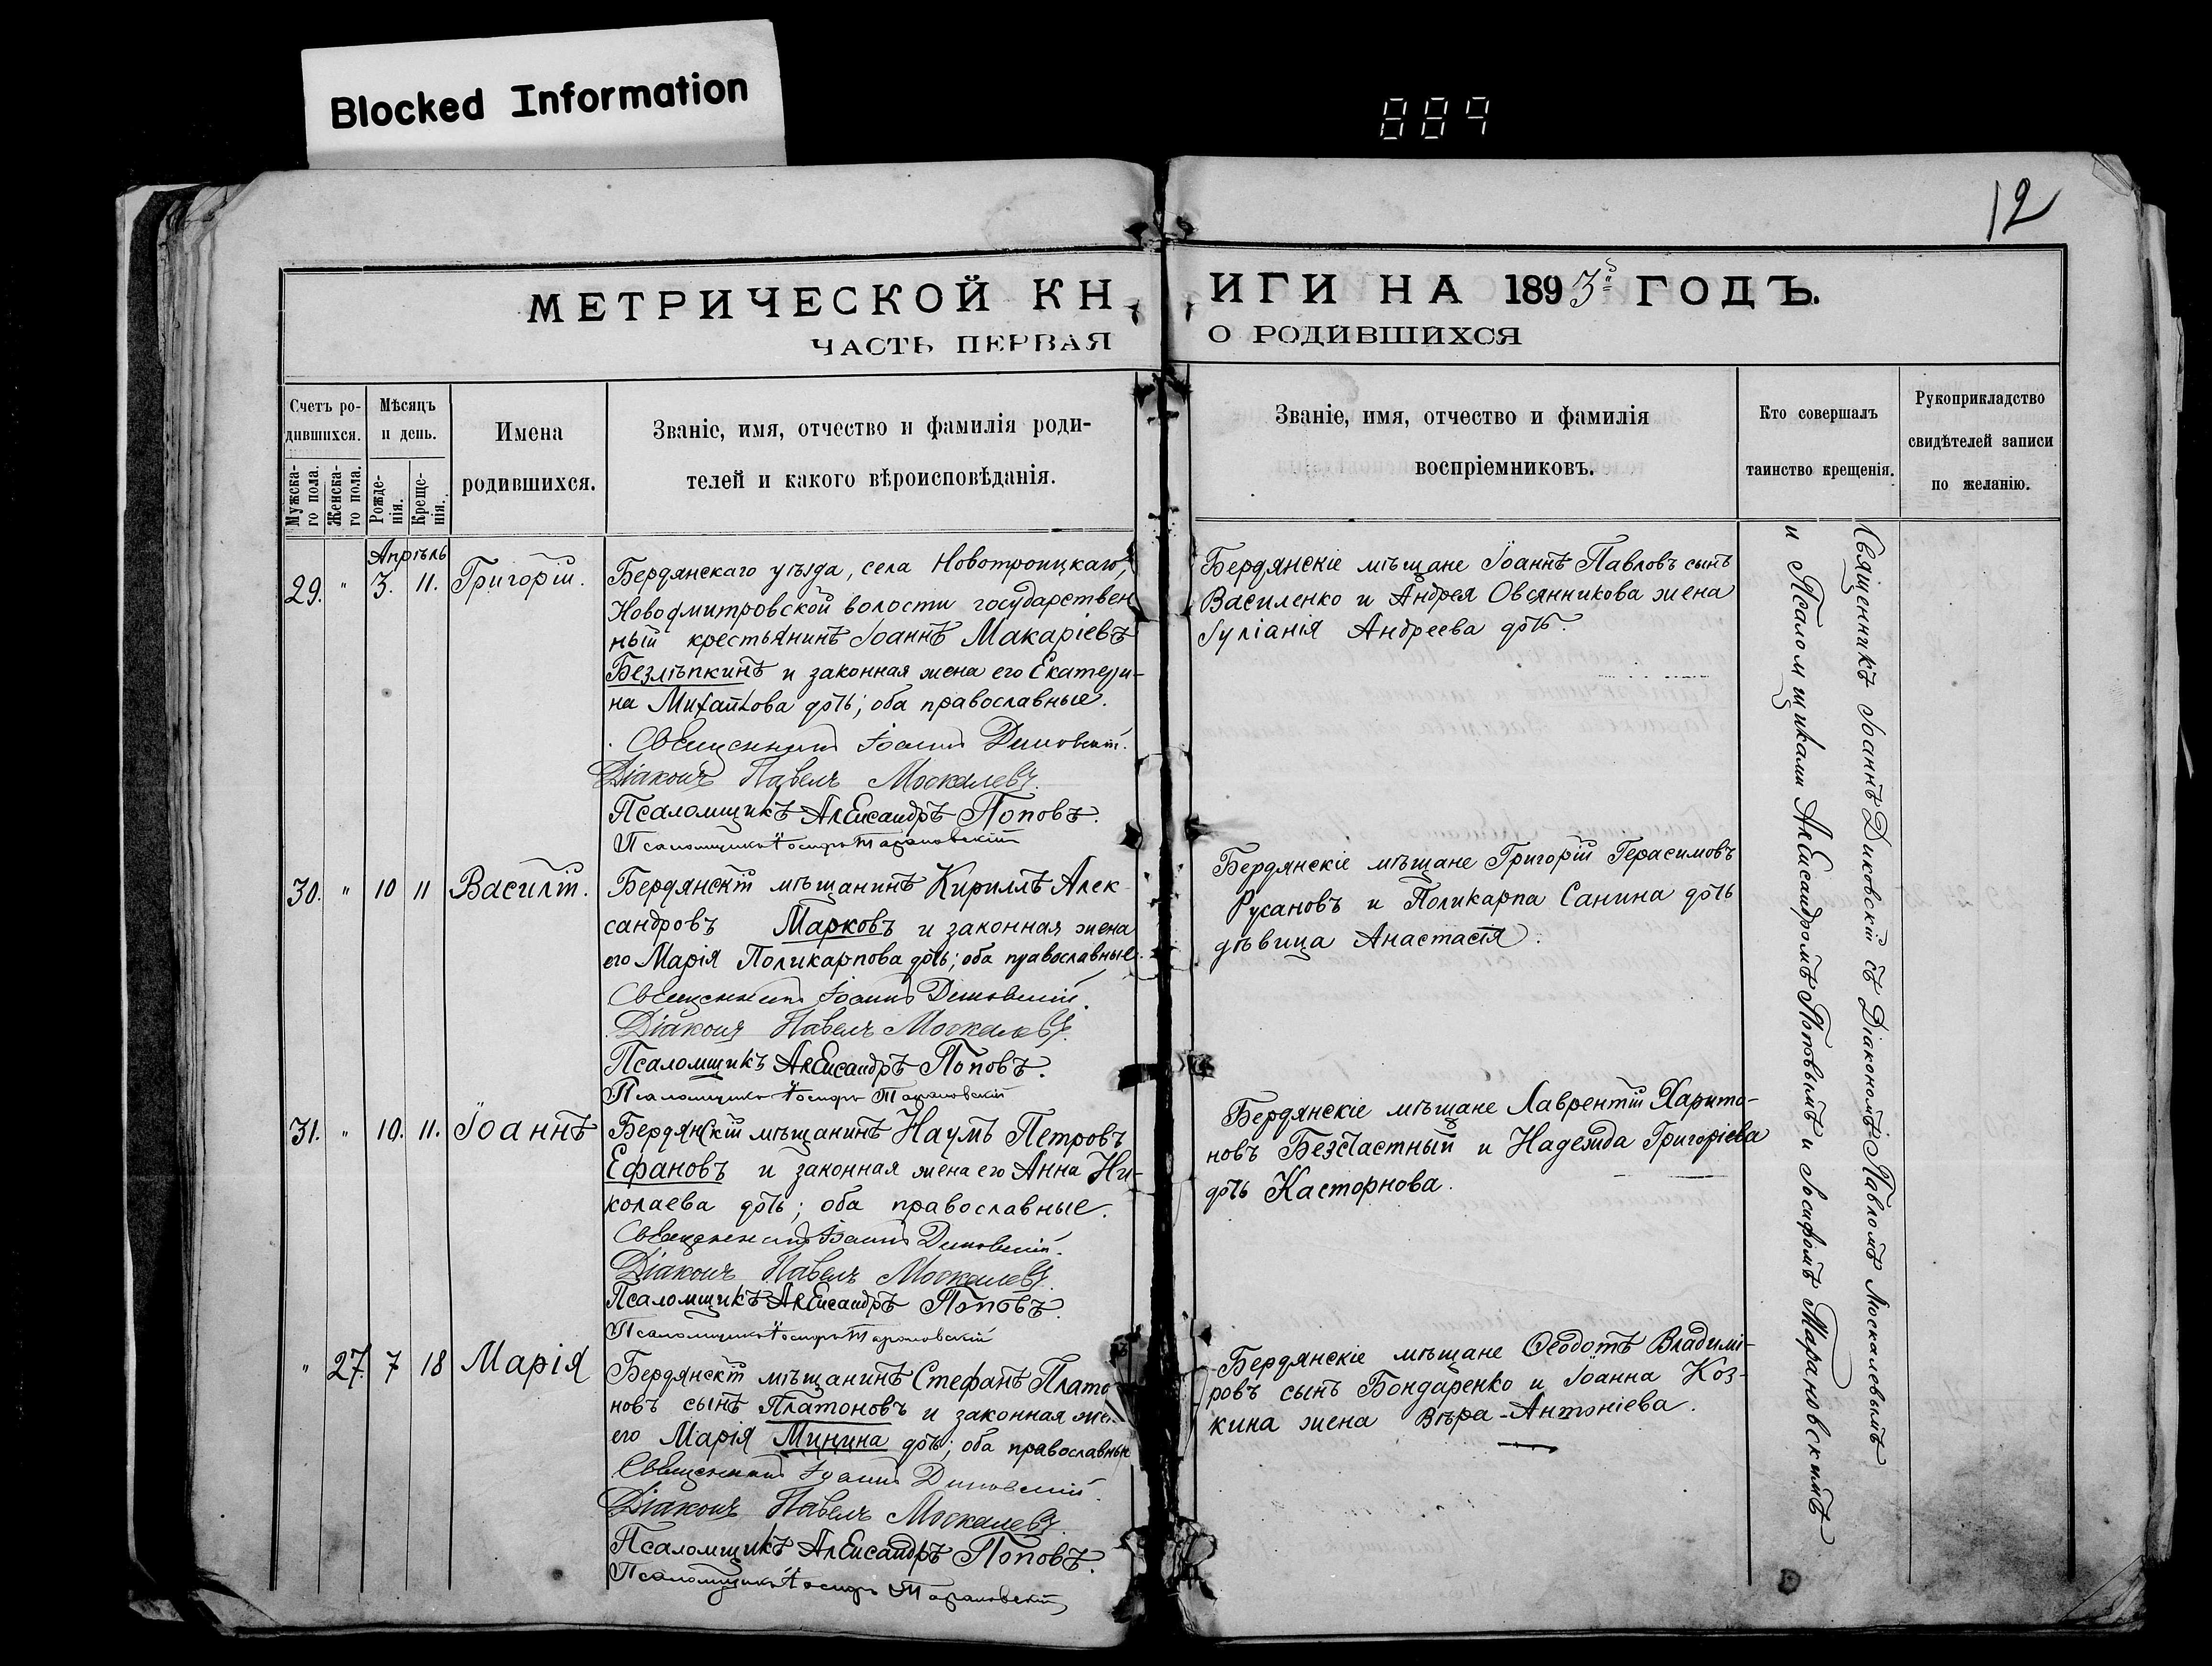 Blocked Information
889
12
МЕТРИЧЕСКОЙ КН
ИГИ НА 1893й ГОДЪ.
ЧАСТЬ ПЕРВАЯ
О РОДИВШИХСЯ
Счетъ ро-
дившихся.
Мужска-
го пола.
Женска-
го пола.
Мѣсяцъ
и день.
Рожде-
нія.
Креще-
нія.
Имена
родившихся.
Званіе, имя, отчество и фамилія роди-
телей и какого вѣроисповѣданія.
Званіе, имя, отчество и фамилія
воспріемниковъ.
Кто совершалъ
таинство крещенія.
Рукоприкладство
свидѣтелей записи
по желанію.
Апрѣль
29. " 3. 11. Григорій.
Бердянскаго уѣзда, села Новотроицкаго,
Новодмитровской волости государствен
ный крестьянинъ Іоаннъ Макаріевъ
Безлѣпкинъ и законная жена его Екатери-
на Михайлова дочь; оба православные.
Священникъ Іоаннъ Диковскій.
Діаконъ Павелъ Москалевъ.
Псаломщикъ Александръ Поповъ.
Псаломщикъ Іосифъ Тарановскій
Бердянскіе мѣщане Іоаннъ Павловъ сынъ
Василенко и Андрея Овсянникова жена
Іуліанія Андреева дочь.
30. " 10 11 Василій.
Бердянскій мѣщанинъ Кириллъ Алек-
сандровъ Марковъ и законная жена
его Марія Поликарпова дочь; оба православные.
Священникъ Іоаннъ Диковскій.
Діаконъ Павелъ Москалевъ.
Псаломщикъ Александръ Поповъ.
Псаломщикъ Іосифъ Тарановскій
Бердянскіе мѣщане Григорій Герасимовъ
Русановъ и Поликарпа Санина дочь
дѣвица Анастасія.
31. " 10. 11. Іоаннъ
Бердянскій мѣщанинъ Наумъ Петровъ
Ефановъ и законная жена его Анна Ни-
колаева дочь; оба православные.
Священникъ Іоаннъ Диковскій.
Діаконъ Павелъ Москалевъ.
Псаломщикъ Александръ Поповъ.
Псаломщикъ Іосифъ Тарановскій
Бердянскіе мѣщане Лаврентій Харито-
новъ Безчастный и Надежда Григоріева
дочь Касторнова.
" 27. 7 18 Марія
Бердянскій мѣщанинъ Стефанъ Плато
новъ сынъ Платоновъ и законная жен
его Марія Минина дочь; оба православны
Священникъ Іоаннъ Диковскій.
Діаконъ Павелъ Москалевъ.
Псаломщикъ Александръ Поповъ.
Псаломщикъ Іосифъ Тарановскій
Бердянскіе мѣщане Ѳеодотъ Владимі-
ровъ сынъ Бондаренко и Іоанна Коз-
кина жена Вѣра Антоніева.
Священникъ Іоаннъ Диковскій съ Діакономъ Павломъ Москалевымъ
и Псаломщиками Александромъ Поповымъ и Іосифомъ Тарановскимъ